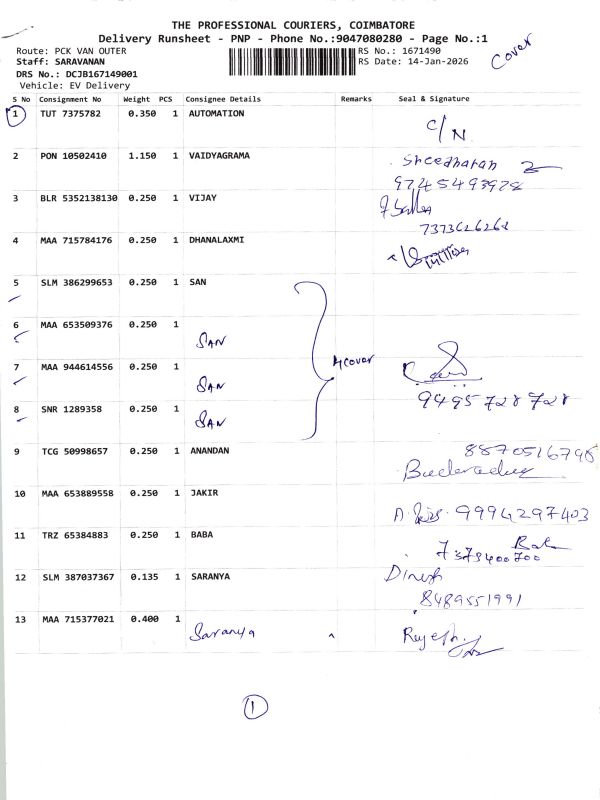 THE PROFESSIONAL COURIERS, COIMBATORE
Delivery Runsheet - PNP - Phone No.:9047080280 - Page No.:1
Cover
Route: PCK VAN OUTER
RS No.: 1671490
Staff: SARAVANAN
RS Date: 14-Jan-2026
DRS No.: DCJB167149001
Vehicle: EV Delivery
S No Consignment No Weight PCS Consignee Details Remarks Seal & Signature
1 TUT 7375782 0.350 1 AUTOMATION C/N
2 PON 10502410 1.150 1 VAIDYAGRAMA Sreedharan
9745493928
3 BLR 5352138130 0.250 1 VIJAY
7373626268
4 MAA 715784176 0.250 1 DHANALAXMI
5 SLM 386299653 0.250 1 SAN
6 MAA 653509376 0.250 1 SAN
7 MAA 944614556 0.250 1 SAN 4cover
8 SNR 1289358 0.250 1 SAN 9495728728
9 TCG 50998657 0.250 1 ANANDAN 8870516798
10 MAA 653889558 0.250 1 JAKIR 9994297403
11 TRZ 65384883 0.250 1 BABA
7373400700
12 SLM 387037367 0.135 1 SARANYA Dinesh
8489551991
13 MAA 715377021 0.400 1 Saranya Rajesh
1